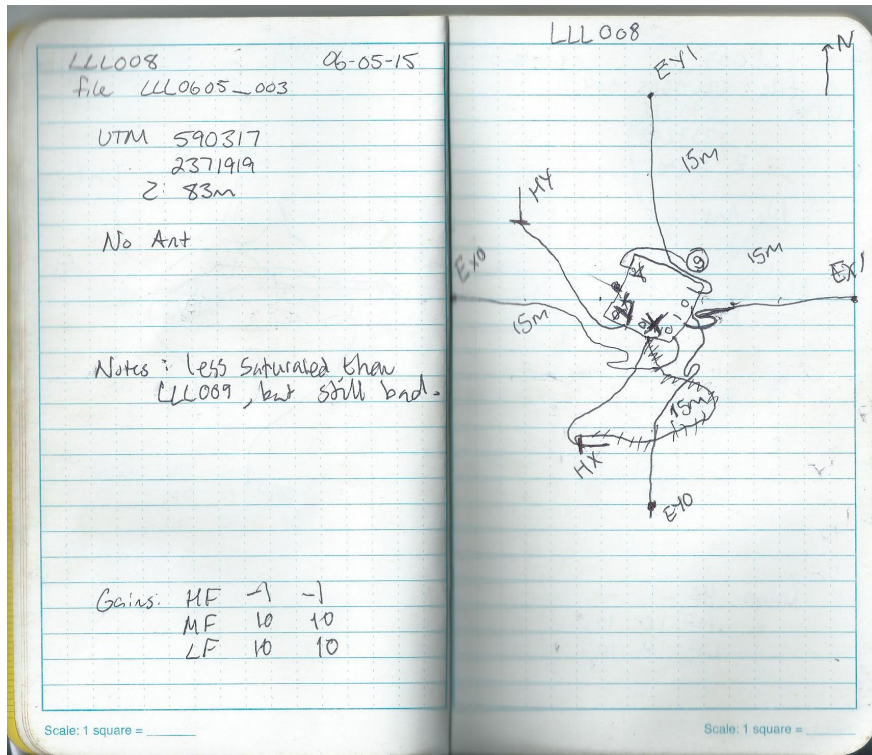 LLL008 06-05-15
file LLL0605_003
UTM 590317
2371919
Z: 83m
No Ant
Notes: less saturated than
LLL009, but still bad.
Gains: HF -1 -1
MF 10 10
LF 10 10
Scale: 1 square =
LLL008
N
EY1
15m
HY
EX0
9
15m
EX1
15m
15m
HX
EY0
Scale: 1 square =